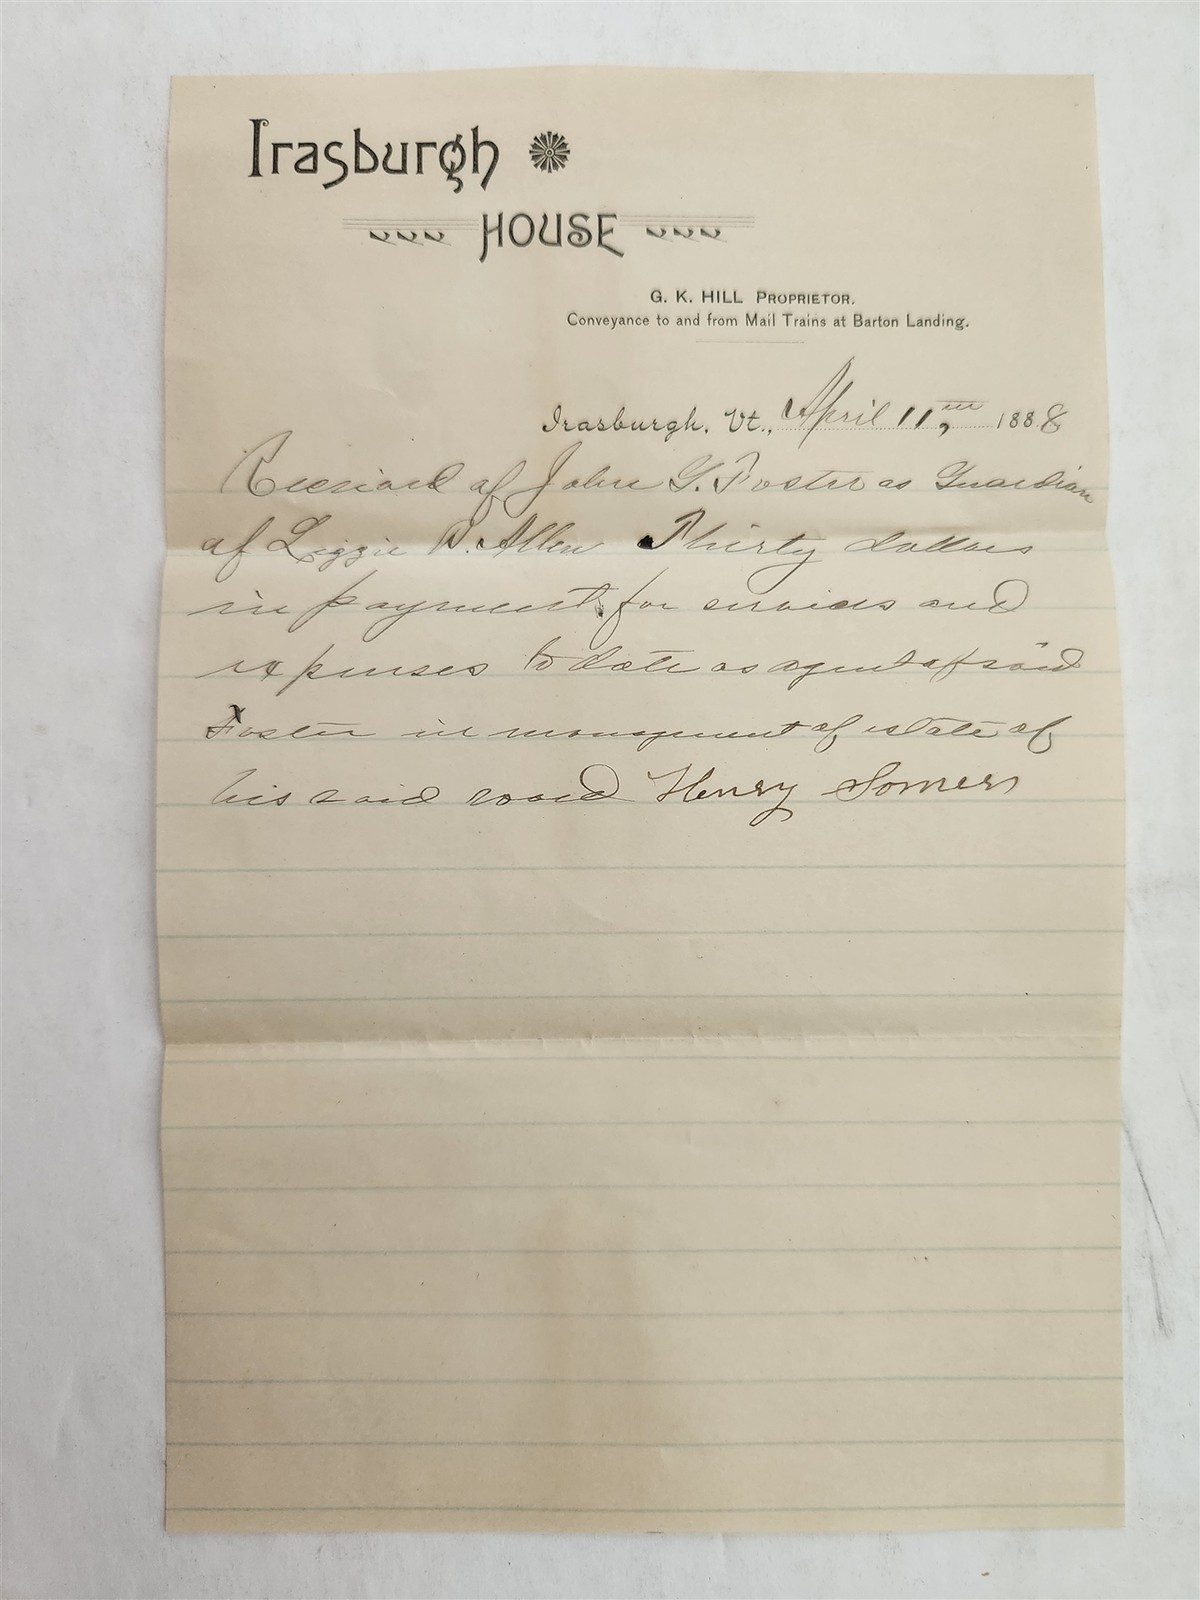 Irasburgh
HOUSE
G. K. HILL PROPRIETOR.
Conveyance to and from Mail Trains at Barton Landing.
Irasburgh, Vt., April 11th, 1888
Received of John G. Foster as Guardian
of Lizzie D. Allen Thirty dollars
in payment for services and
expenses to date as agent of said
Foster in managment of estate of
his said ward Henry Somers